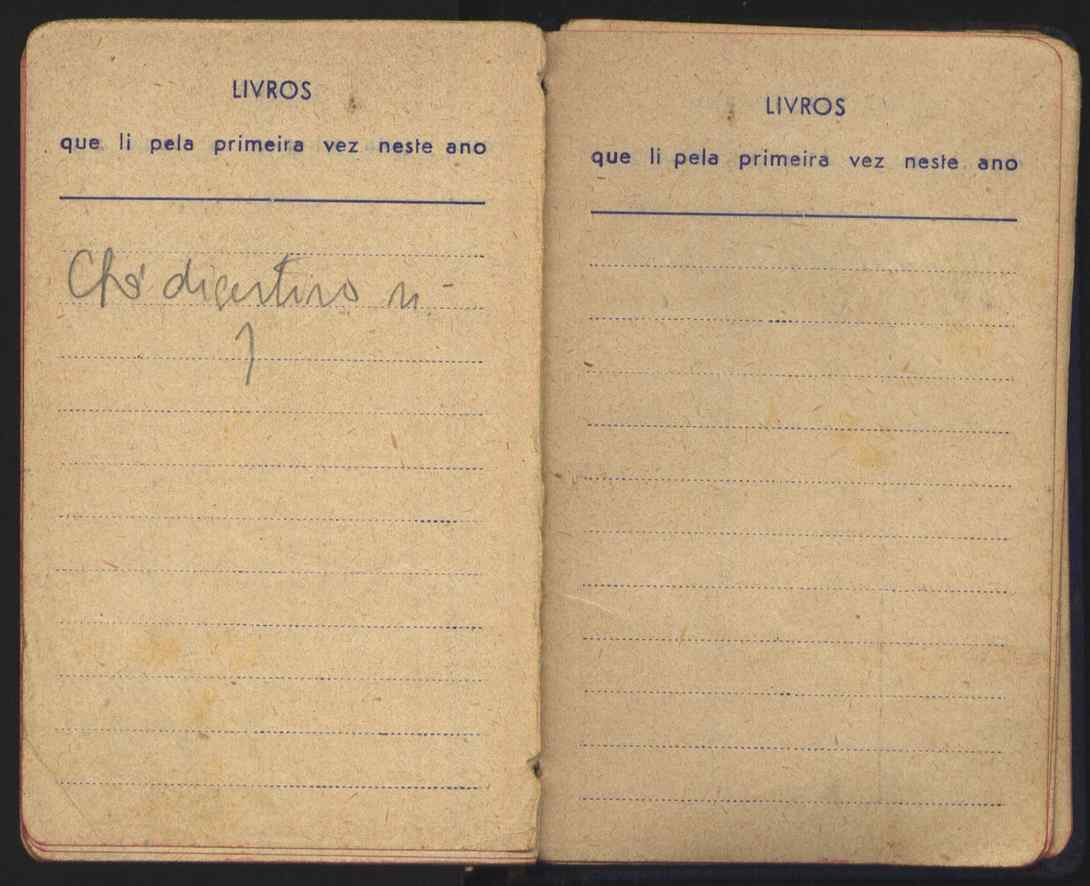 LIVROS
que li pela primeira vez neste ano
Chá digestivo n.º
1
LIVROS
que li pela primeira vez neste ano